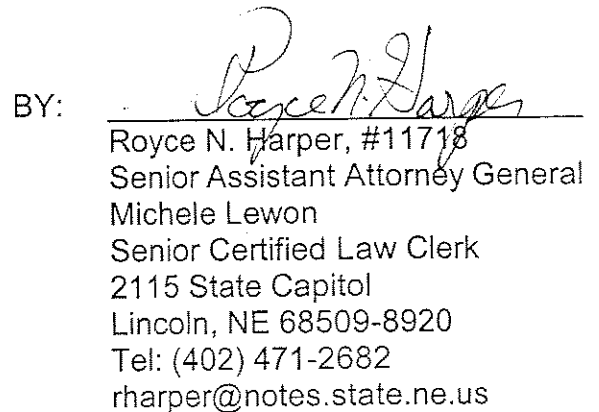 BY: Royce N. Harper
Royce N. Harper, #11718
Senior Assistant Attorney General
Michele Lewon
Senior Certified Law Clerk
2115 State Capitol
Lincoln, NE 68509-8920
Tel: (402) 471-2682
rharper@notes.state.ne.us